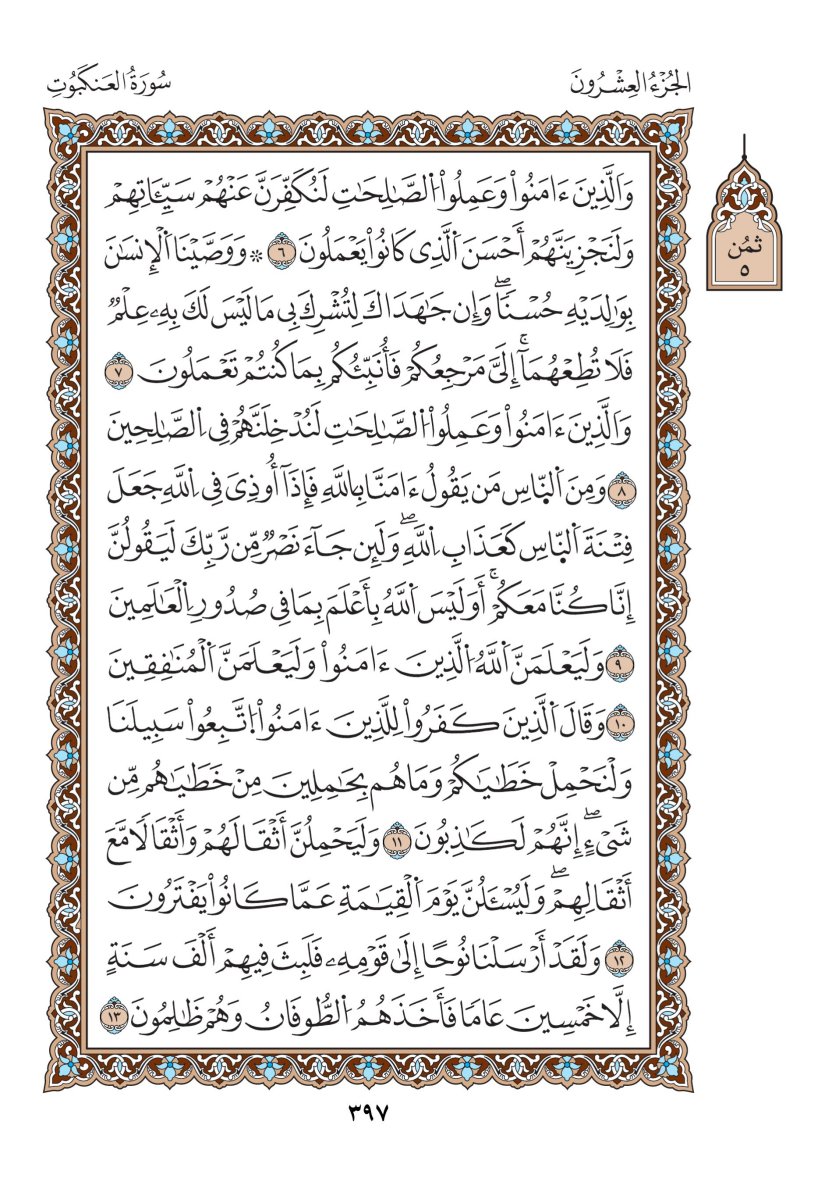 الجُزْءُ العِشْرُونَ
سُورَةُ العَنكَبُوتِ
ثُمُن
٥
وَالَّذِينَ ءَامَنُواْ وَعَمِلُواْ اُلصَّٰلِحَٰتِ لَنُكَفِّرَنَّ عَنْهُمْ سَيِّـَٔاتِهِمْ
وَلَنَجْزِيَنَّهُمْ أَحْسَنَ اَلَّذِى كَانُواْ يَعْمَلُونَ ٦ ۞ وَوَصَّيْنَا اَلْإِنسَٰنَ
بِوَٰلِدَيْهِ حُسْنًاۖ وَإِن جَٰهَدَاكَ لِتُشْرِكَ بِى مَا لَيْسَ لَكَ بِهِۦ عِلْمٌ
فَلَا تُطِعْهُمَآۚ إِلَىَّ مَرْجِعُكُمْ فَأُنَبِّئُكُم بِمَا كُنتُمْ تَعْمَلُونَ ٧
وَالَّذِينَ ءَامَنُواْ وَعَمِلُواْ اُلصَّٰلِحَٰتِ لَنُدْخِلَنَّهُمْ فِى اِلصَّٰلِحِينَ
٨ وَمِنَ اَلنَّاسِ مَن يَقُولُ ءَامَنَّا بِاللَّهِ فَإِذَآ أُوذِىَ فِى اِللَّهِ جَعَلَ
فِتْنَةَ اَلنَّاسِ كَعَذَابِ اِللَّهِۖ وَلَئِن جَآءَ نَصْرٌ مِّن رَّبِّكَ لَيَقُولُنَّ
إِنَّا كُنَّا مَعَكُمْۚ أَوَلَيْسَ اَللَّهُ بِأَعْلَمَ بِمَا فِى صُدُورِ اِلْعَٰلَمِينَ
٩ وَلَيَعْلَمَنَّ اَللَّهُ اُلَّذِينَ ءَامَنُواْ وَلَيَعْلَمَنَّ اَلْمُنَٰفِقِينَ
١٠ وَقَالَ اَلَّذِينَ كَفَرُواْ لِلَّذِينَ ءَامَنُواْ اُتَّبِعُواْ سَبِيلَنَا
وَلْنَحْمِلْ خَطَٰيَٰكُمْ وَمَا هُم بِحَٰمِلِينَ مِنْ خَطَٰيَٰهُم مِّن
شَىْءٍۖ إِنَّهُمْ لَكَٰذِبُونَ ١١ وَلَيَحْمِلُنَّ أَثْقَالَهُمْ وَأَثْقَالًا مَّعَ
أَثْقَالِهِمْۖ وَلَيُسْـَٔلُنَّ يَوْمَ اَلْقِيَٰمَةِ عَمَّا كَانُواْ يَفْتَرُونَ
١٢ وَلَقَدْ أَرْسَلْنَا نُوحًا إِلَىٰ قَوْمِهِۦ فَلَبِثَ فِيهِمْ أَلْفَ سَنَةٍ
إِلَّا خَمْسِينَ عَامًا فَأَخَذَهُمُ اُلطُّوفَانُ وَهُمْ ظَٰلِمُونَ ١٣
٣٩٧